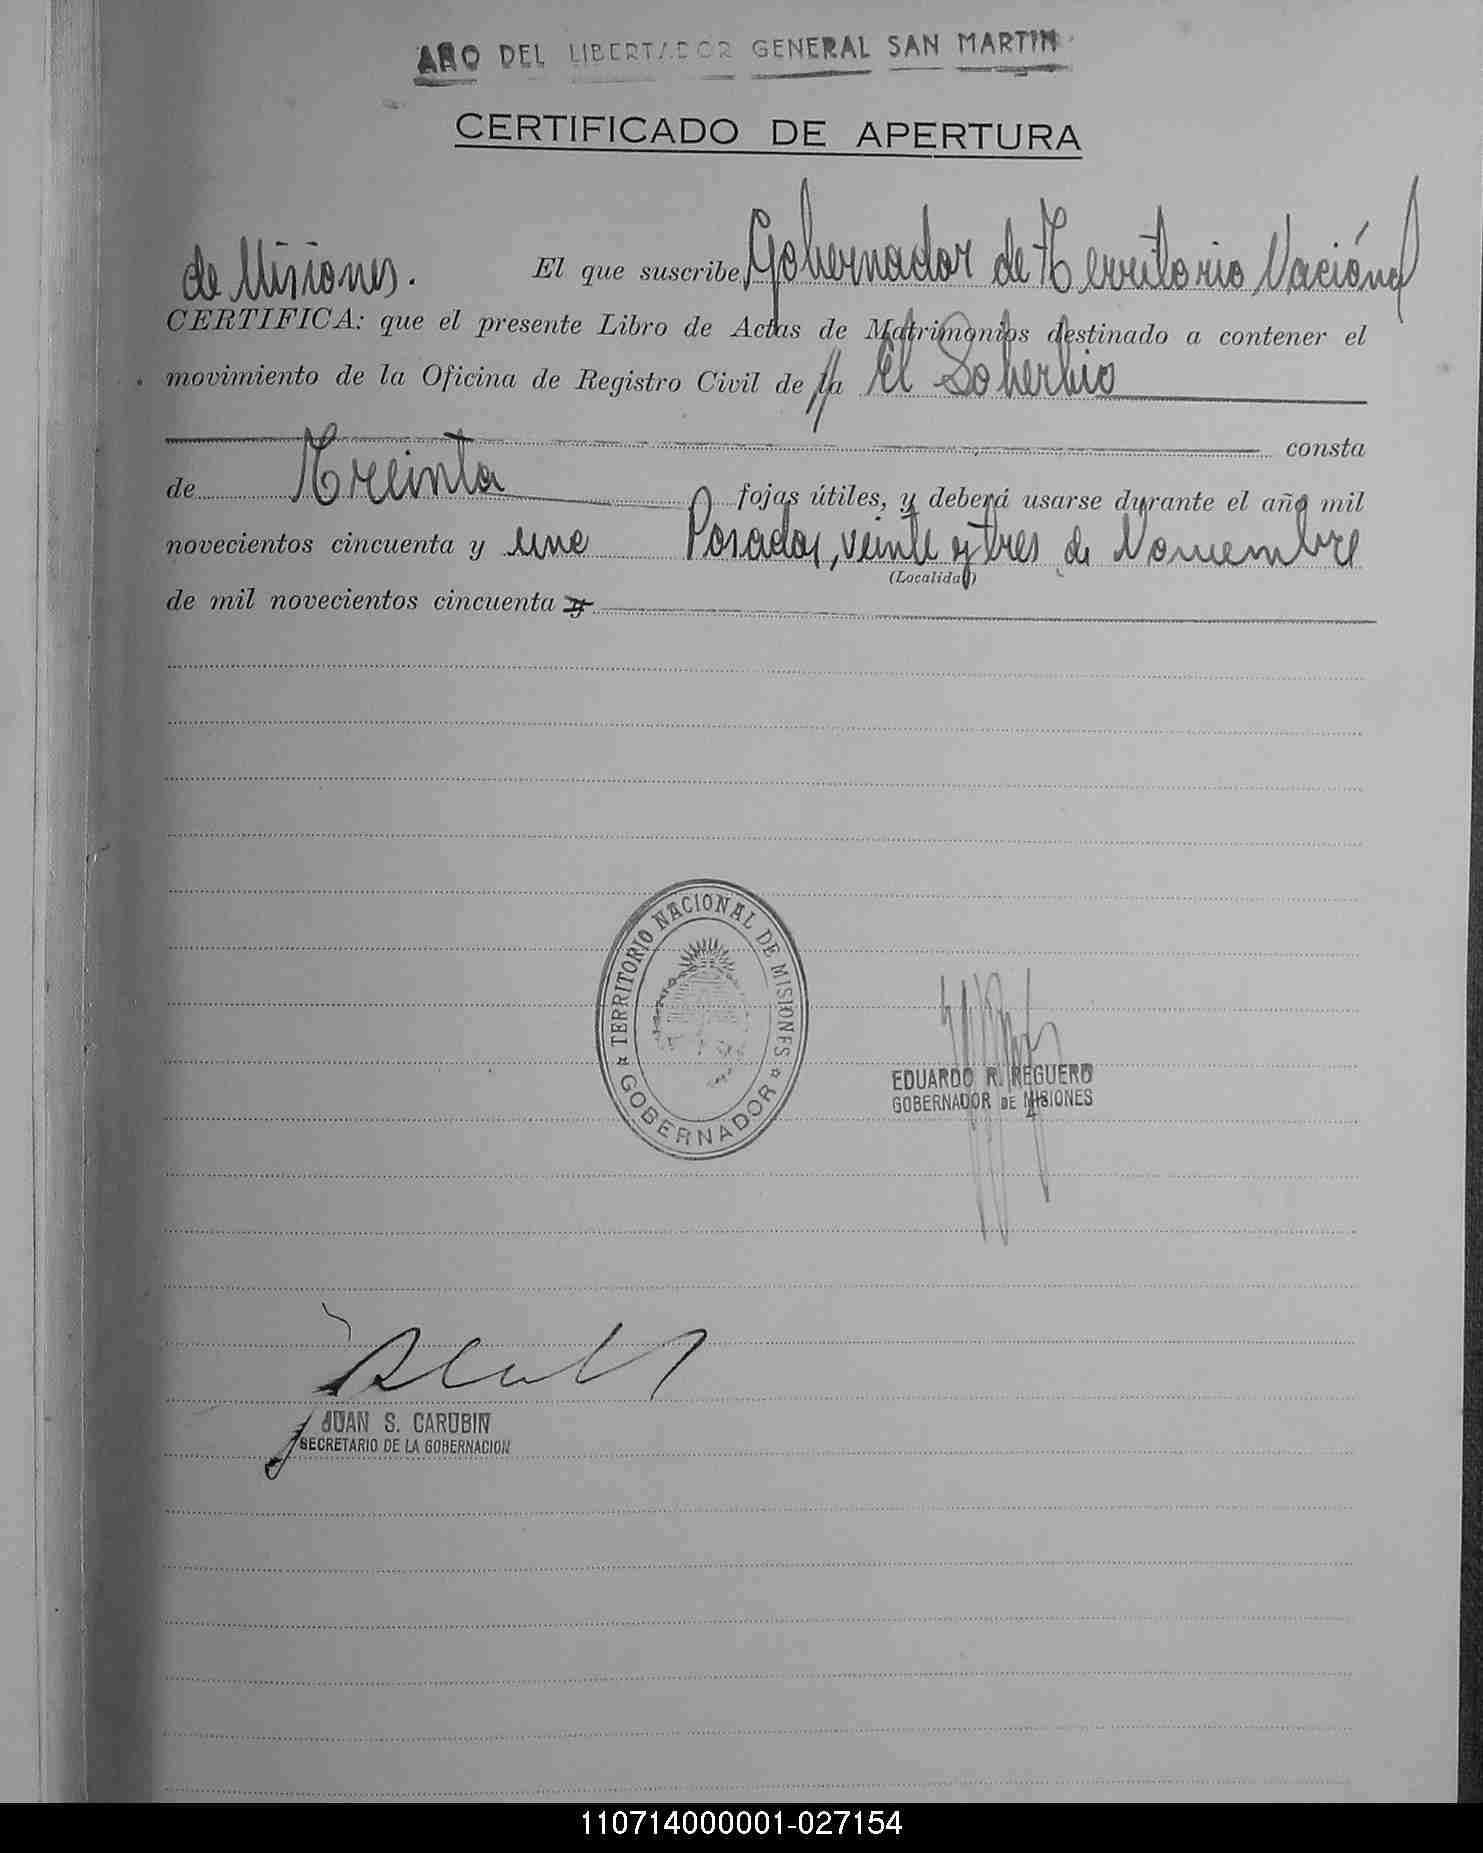 AÑO DEL LIBERTADOR GENERAL SAN MARTIN
CERTIFICADO DE APERTURA
El que suscribe, Gobernador de Territorio Naciónal
de Misiones.
CERTIFICA: que el presente Libro de Actas de Matrimonios destinado a contener el
movimiento de la Oficina de Registro Civil de la El Soberbio
consta
de Treinta fojas útiles, y deberá usarse durante el año mil
novecientos cincuenta y uno Posadas, veinte y tres de Noviembre
(Localidad)
de mil novecientos cincuenta y
TERRITORIO NACIONAL DE MISIONES
GOBERNADOR
EDUARDO R. REGUERO
GOBERNADOR DE MISIONES
JUAN S. CARUBIN
SECRETARIO DE LA GOBERNACION
110714000001-027154